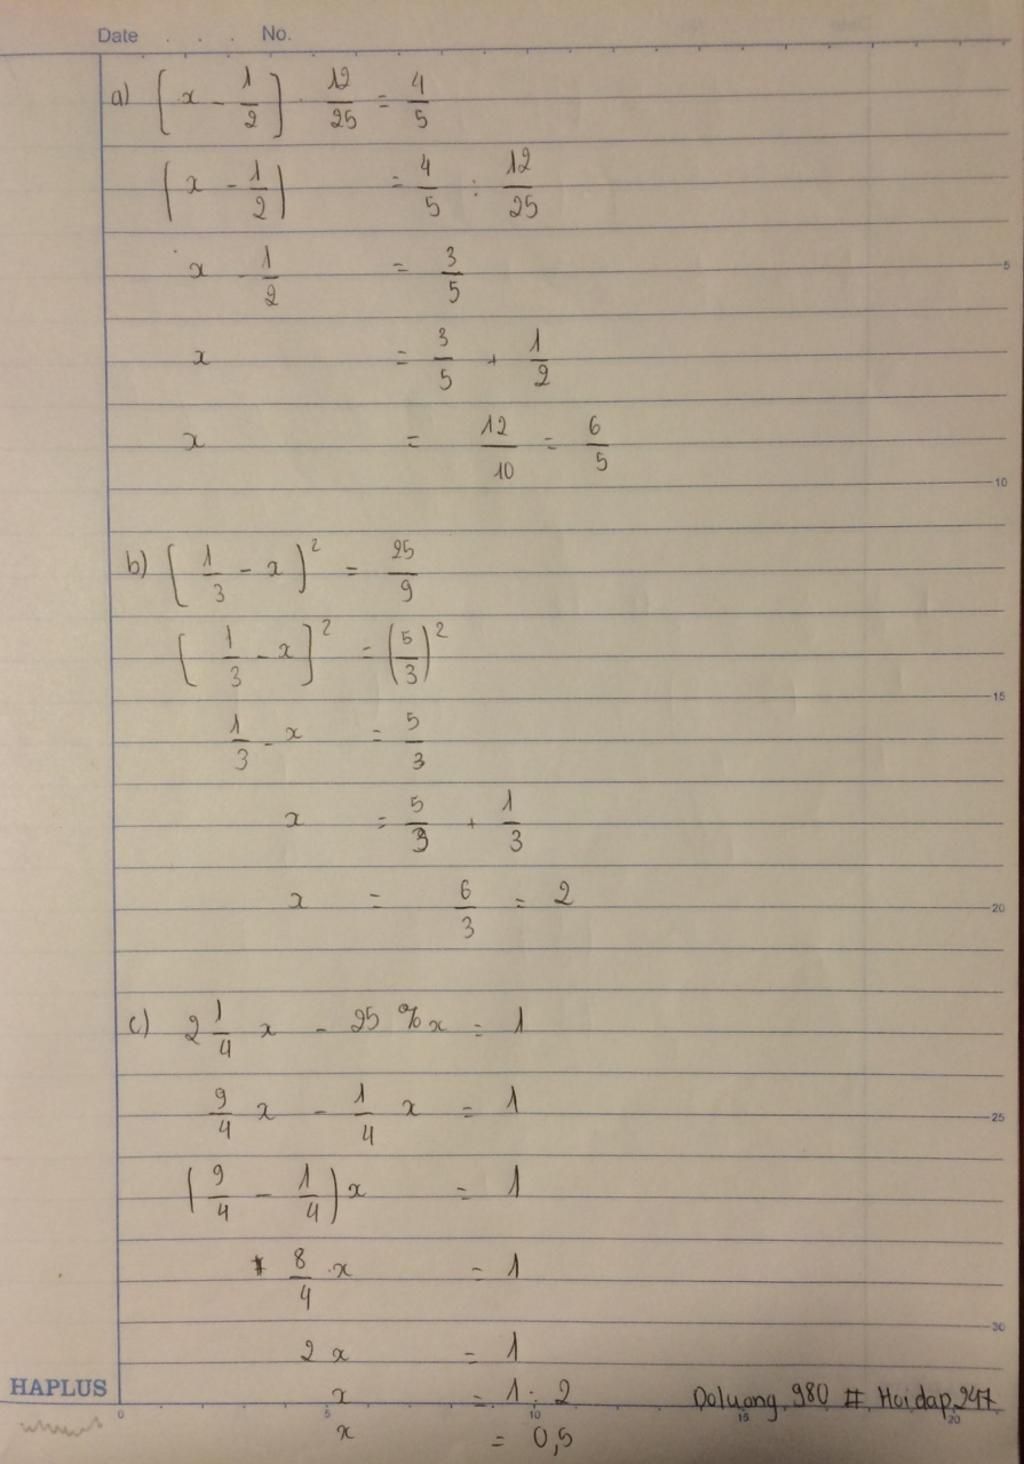 Date . . . No.
a) (x - 1/2) . 12/25 = 4/5
(x - 1/2) = 4/5 : 12/25
x - 1/2 = 3/5
5
x = 3/5 + 1/2
x = 12/10 = 6/5
10
b) (1/3 - x)² = 25/9
(1/3 - x)² = (5/3)²
15
1/3 - x = 5/3
x = 5/3 + 1/3
x = 6/3 = 2
20
c) 2 1/4 x - 25 % x = 1
9/4 x - 1/4 x = 1
25
(9/4 - 1/4) x = 1
8/4 . x = 1
30
2 x = 1
HAPLUS
x = 1 : 2
Doluong 980 #. Hoidap 247
0 5 10 15 20
x = 0,5